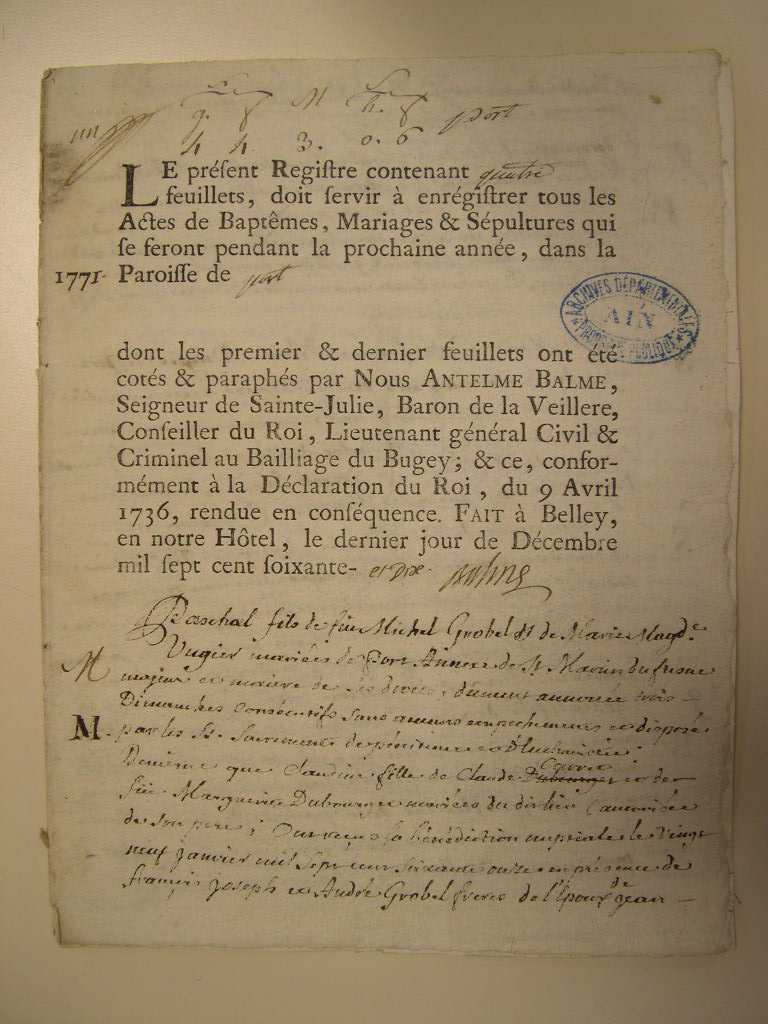 g. 8 M h. 8 port
4 4 3. 0. 6
LE préſent Regiſtre contenant quatre
feuillets, doit ſervir à enrégiſtrer tous les
Actes de Baptêmes, Mariages & Sépultures qui
ſe feront pendant la prochaine année, dans la
1771. Paroiſſe de port
ARCHIVES DÉPARTEMENTALES
AIN
dont les premier & dernier feuillets ont été
cotés & paraphés par Nous ANTELME BALME,
Seigneur de Sainte-Julie, Baron de la Veillere,
Conſeiller du Roi, Lieutenant général Civil &
Criminel au Bailliage du Bugey; & ce, confor-
mément à la Déclaration du Roi, du 9 Avril
1736, rendue en conſéquence. FAIT à Belley,
en notre Hôtel, le dernier jour de Décembre
mil ſept cent ſoixante- et Dix
Paschal fils de feu Michel Grobel & de Marie Magd.e
M Vugier mariées de Port Annexe de St Martin du fresne
majeur et maitre de ses droits; dument annoncée trois
Dimanches consécutifs sans aucuns empechements et disposé
M. par les Sts. Sacrements de pénitence et d'Eucharistie;
De même que Claudine fille de Claude et de
feüe Marguerite Dubourget mariées du dit lieu autorisée
de son pere; Ont reçus la bénédiction nuptiale le vingt
neuf janvier mil sept cent soixante onze en présence de
françois joseph et André Grobel freres de l'époux de jean